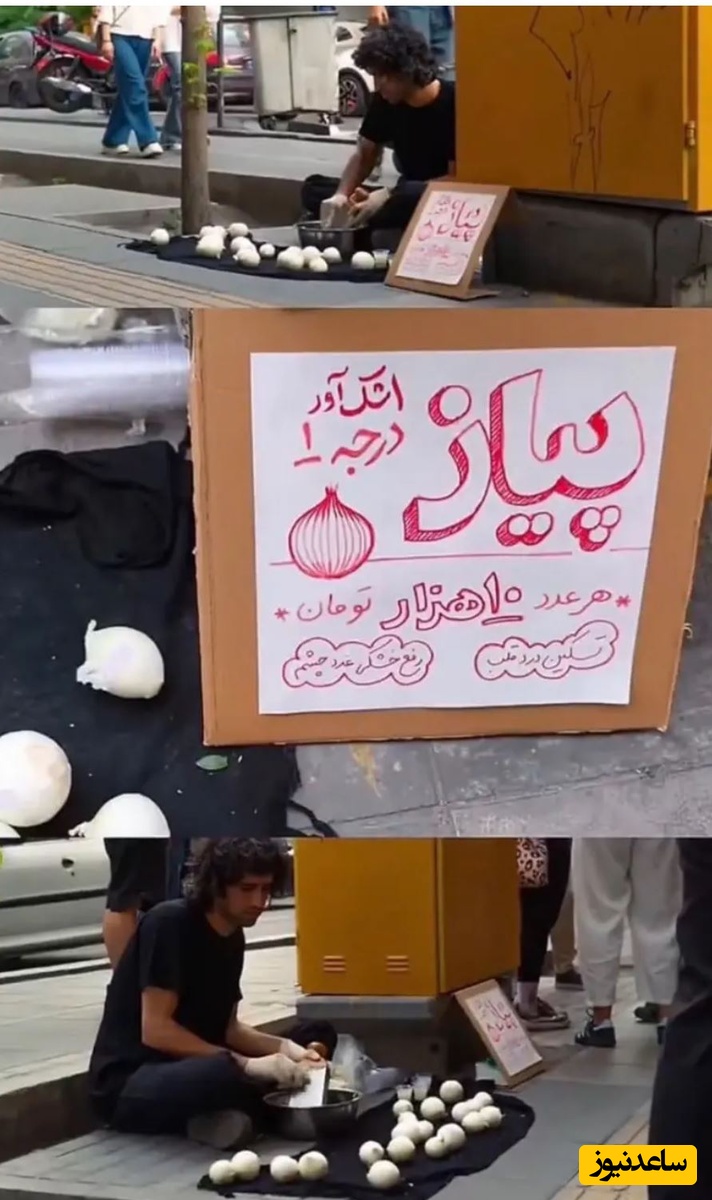 پیاز
اشک‌آور
درجه ۱
* هر عدد ۱۰ هزار تومان *
تسکین درد قلب
رفع خشکی غدد چشم
ساعدنیوز